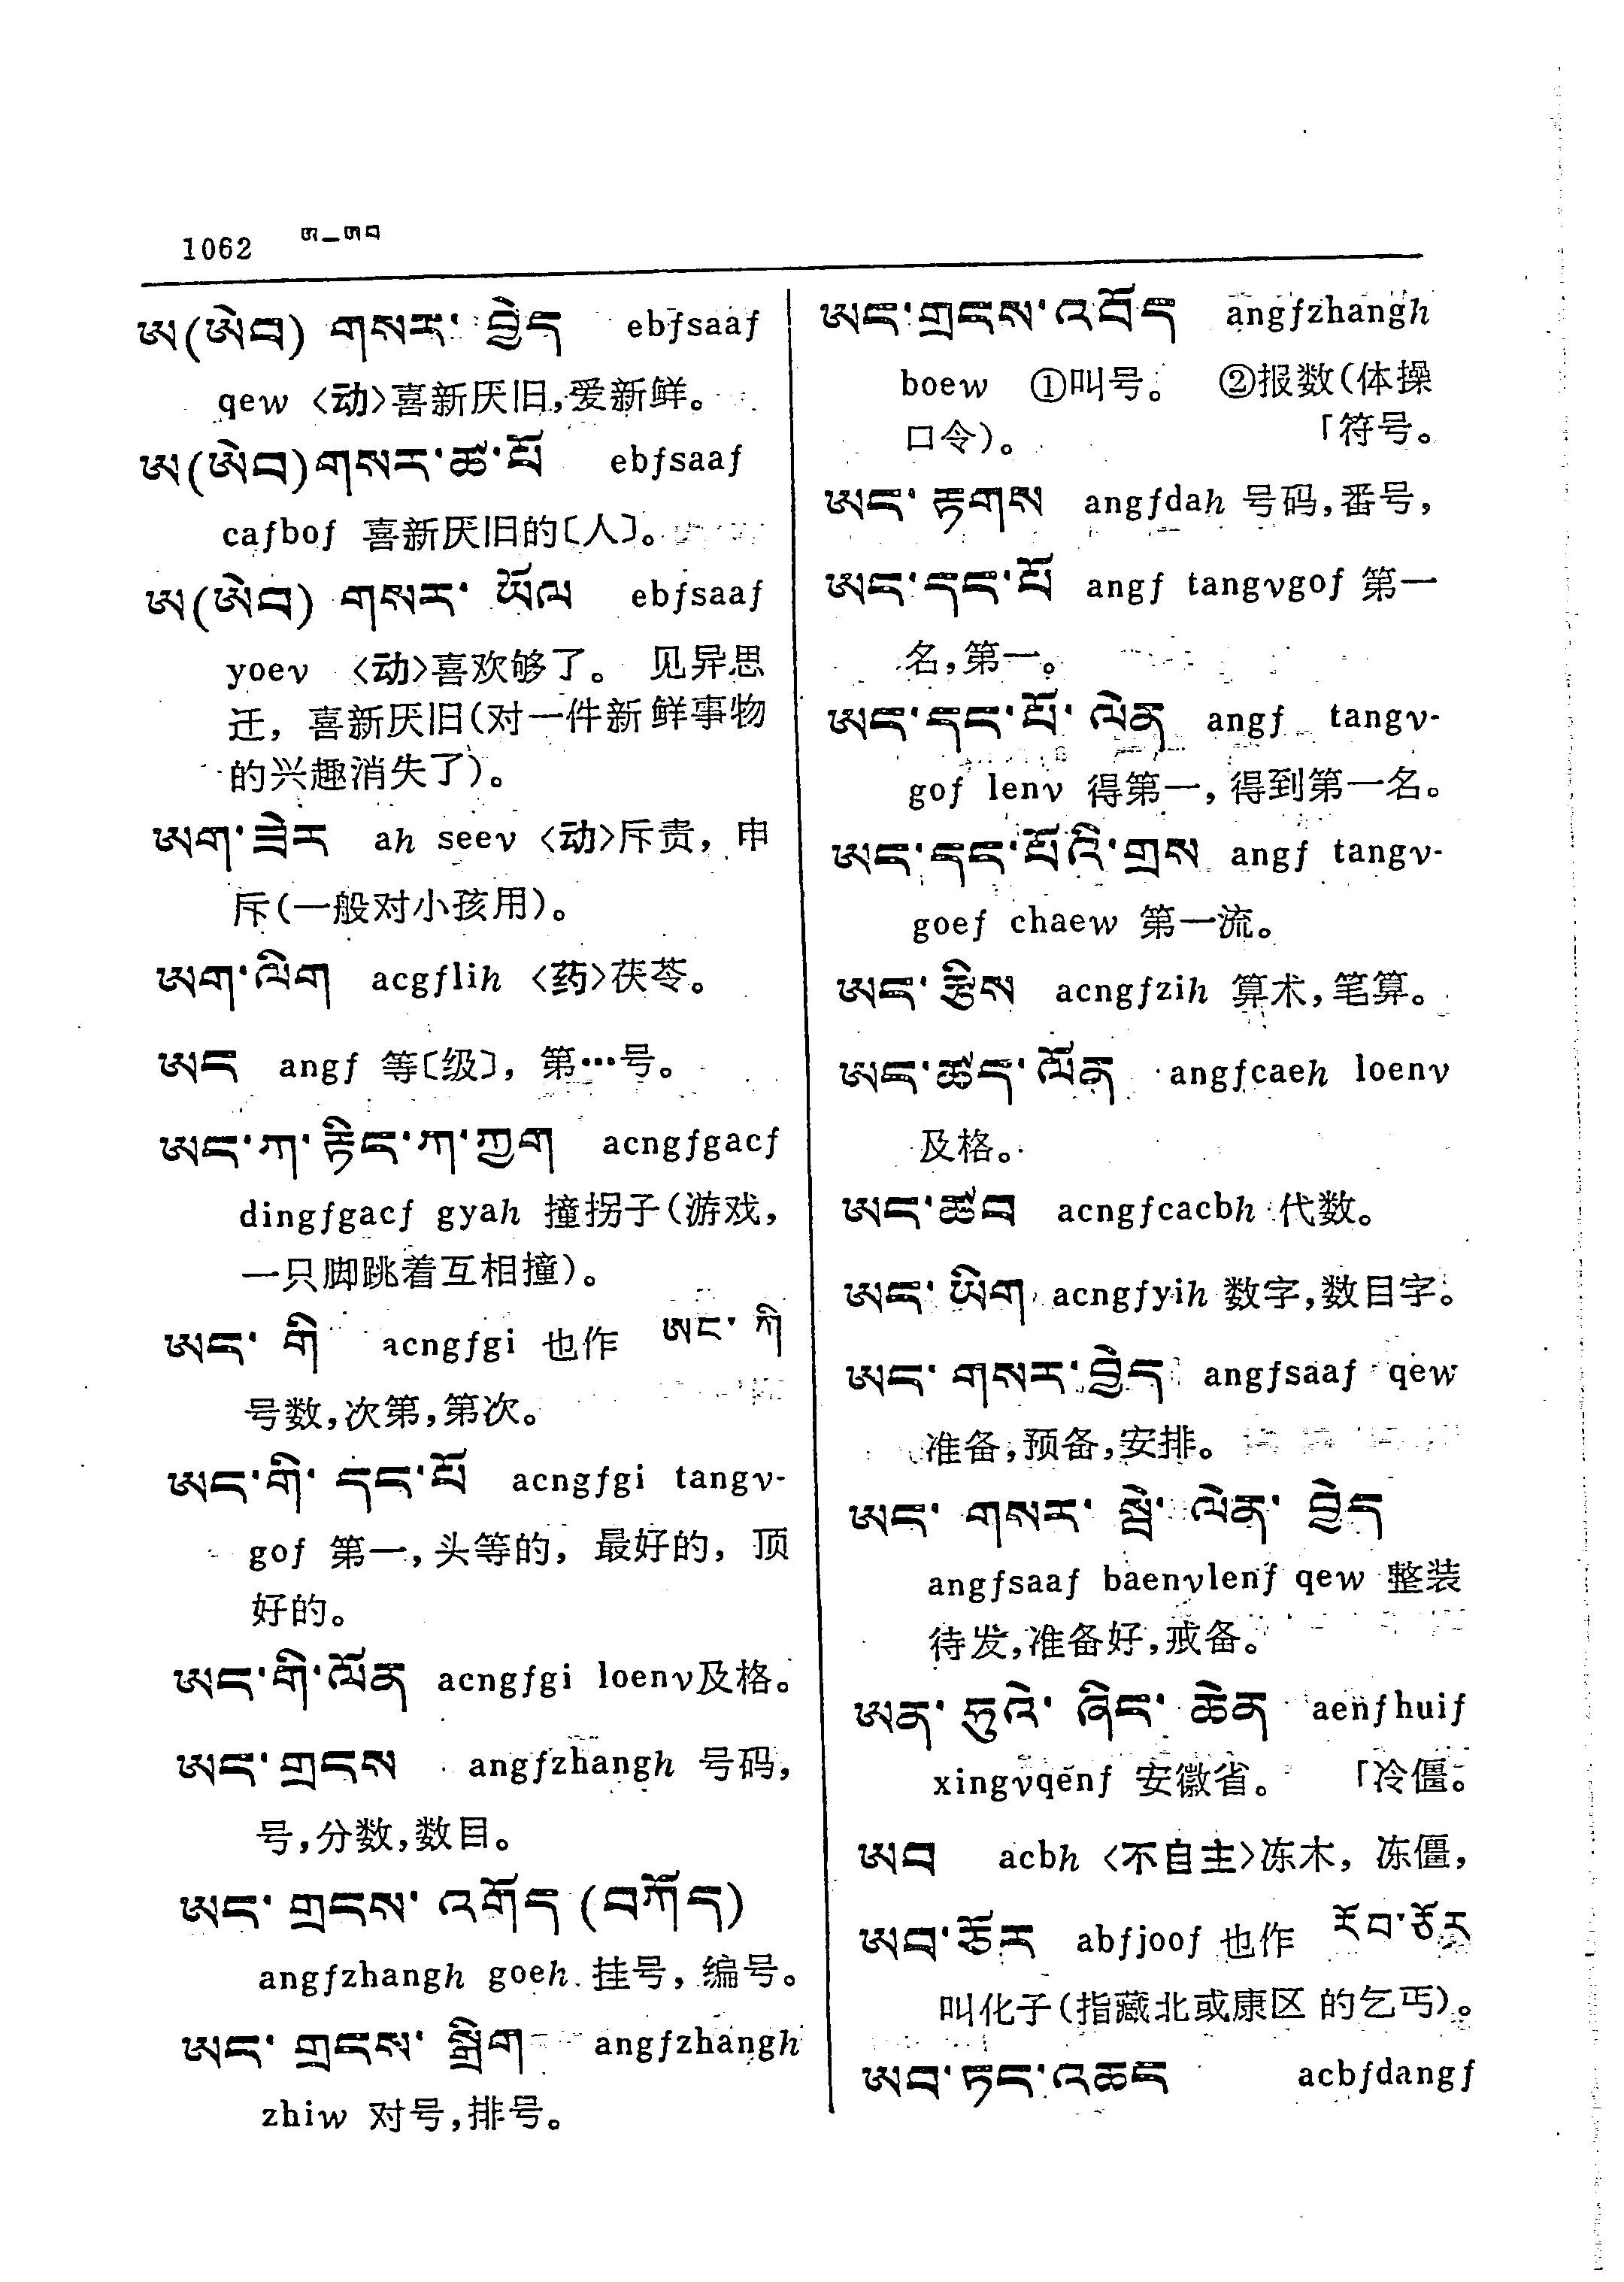 1062 ཨ—ཨབ
ཨ(ཨེབ) གསར་ བྱེད ebfsaaf
qew 〈动〉喜新厌旧,爱新鲜。
ཨ(ཨེབ)གསར་ཚ་པོ ebfsaaf
cafbof 喜新厌旧的〔人〕。
ཨ(ཨེབ) གསར་ ཡོལ ebfsaaf
yoev 〈动〉喜欢够了。 见异思
迁, 喜新厌旧(对一件新鲜事物
的兴趣消失了)。
ཨག་ཟེར ah seev 〈动〉斥责, 申
斥(一般对小孩用)。
ཨག་ལིག acgflih 〈药〉茯苓。
ཨང angf 等〔级〕, 第…号。
ཨང་ཀ་རྟིང་ཀ་ཀྱག acngfgacf
dingfgacf gyah 撞拐子(游戏,
一只脚跳着互相撞)。
ཨང་ གི acngfgi 也作 ཨང་ ཀི
号数,次第,第次。
ཨང་གི་ དང་པོ acngfgi tangv-
gof 第一,头等的, 最好的, 顶
好的。
ཨང་གི་ལོན acngfgi loenv及格。
ཨང་གྲངས angfzhangh 号码,
号,分数,数目。
ཨང་ གྲངས་ འགོད (བཀོད)
angfzhangh goeh 挂号, 编号。
ཨང་ གྲངས་ སྒྲིག angfzhangh
zhiw 对号,排号。
ཨང་གྲངས་འབོད angfzhangh
boew ①叫号。 ②报数(体操
口令)。 「符号。
ཨང་ རྟགས angfdah 号码,番号,
ཨང་དང་པོ angf tangvgof 第一
名,第一。
ཨང་དང་པོ་ ལེན angf tangv-
gof lenv 得第一,得到第一名。
ཨང་དང་པོའི་གྲས angf tangv-
goef chaew 第一流。
ཨང་ རྩིས acngfzih 算术,笔算。
ཨང་ཚད་ལོན angfcaeh loenv
及格。
ཨང་ཚབ acngfcacbh 代数。
ཨང་ ཡིག acngfyih 数字,数目字。
ཨང་ གསར་བྱེད angfsaaf qew
准备,预备,安排。
ཨང་ གསར་ སྦེ་ ལེན་ བྱེད
angfsaaf baenvlenf qew 整装
待发,准备好,戒备。
ཨན་ ཧུའེ་ ཞིང་ ཆེན aenfhuif
xingvqenf 安徽省。 「冷僵。
ཨབ acbh 〈不自主〉冻木, 冻僵,
ཨབ་ཅོར abfjoof 也作 རོབ་ཅོར
叫化子(指藏北或康区的乞丐)。
ཨབ་ཏང་འཆད acbfdangf